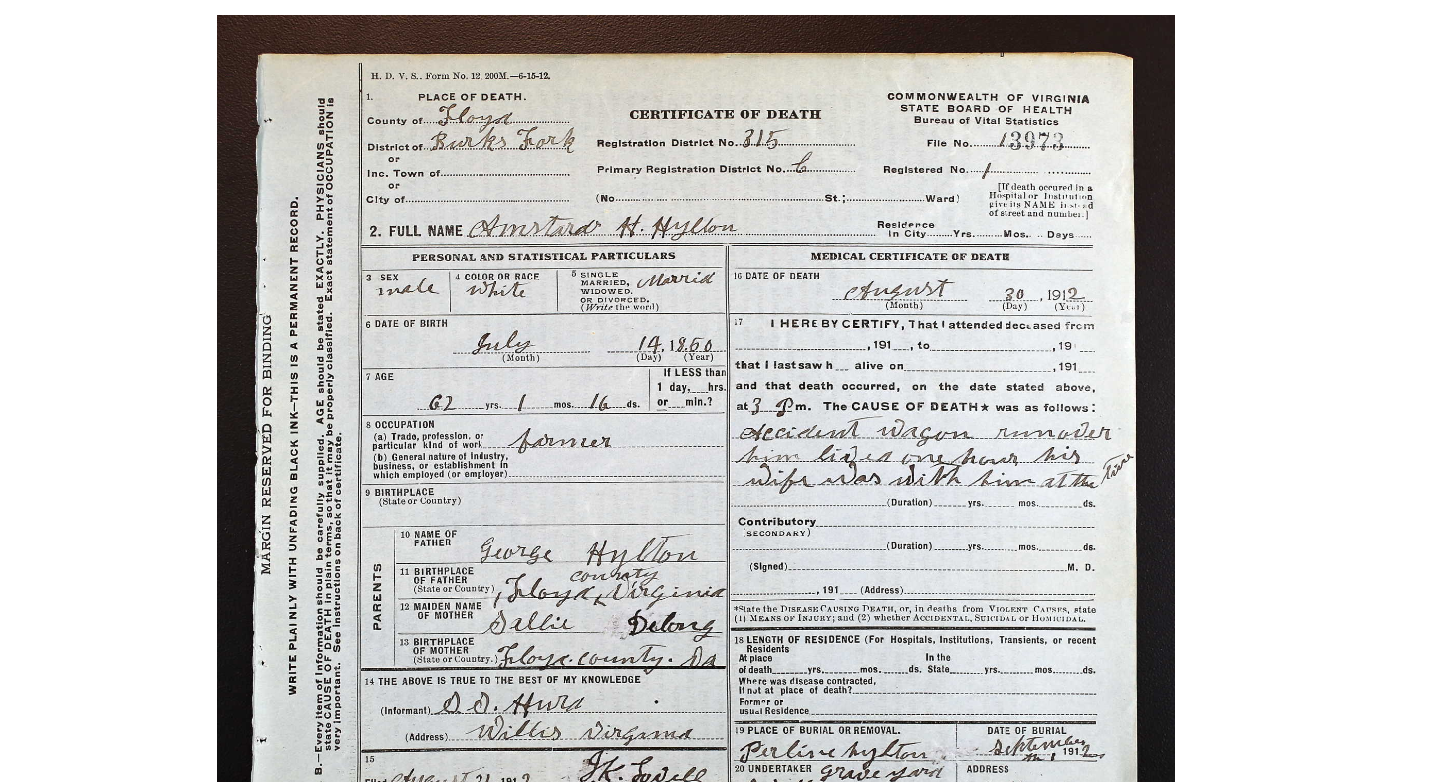 H. D. V. S., Form No. 12. 200M.—6-15-12.
1. PLACE OF DEATH.
County of Floyd
District of Burks Fork
or
Inc. Town of
or
City of
CERTIFICATE OF DEATH
Registration District No. 315
Primary Registration District No. 6
(No. St.; Ward)
COMMONWEALTH OF VIRGINIA
STATE BOARD OF HEALTH
Bureau of Vital Statistics
File No. 13973
Registered No. 1
[If death occured in a
Hospital or Institution
give its NAME instead
of street and number.]
2. FULL NAME Amstard H. Hylton
Residence
In City Yrs. Mos. Days
PERSONAL AND STATISTICAL PARTICULARS
3 SEX
male
4 COLOR OR RACE
white
5 SINGLE
MARRIED,
WIDOWED,
OR DIVORCED.
(Write the word)
Marrid
6 DATE OF BIRTH
July 14, 1850
(Month) (Day) (Year)
7 AGE
62 yrs. 1 mos. 16 ds.
If LESS than
1 day, hrs.
or min.?
8 OCCUPATION
(a) Trade, profession, or
particular kind of work farmer
(b) General nature of industry,
business, or establishment in
which employed (or employer)
9 BIRTHPLACE
(State or Country)
PARENTS
10 NAME OF
FATHER
George Hylton
11 BIRTHPLACE
OF FATHER
(State or Country)
Floyd county Virginia
12 MAIDEN NAME
OF MOTHER
Sallie Delong
13 BIRTHPLACE
OF MOTHER
(State or Country.)
Floyd county. Va
14 THE ABOVE IS TRUE TO THE BEST OF MY KNOWLEDGE
(Informant) Hurd
(Address) Willis Virginia
15
August 31 1912
MEDICAL CERTIFICATE OF DEATH
16 DATE OF DEATH
August 30, 1912
(Month) (Day) (Year)
17 I HEREBY CERTIFY, That I attended deceased from
, 191 , to , 19
that I last saw h alive on , 191
and that death occurred, on the date stated above,
at 3 P m. The CAUSE OF DEATH★ was as follows:
Accident wagon run over
him lived one hour his
wife was with him at the time
(Duration) yrs. mos. ds.
Contributory
SECONDARY)
(Duration) yrs. mos. ds.
(Signed) M. D.
, 191 (Address)
*State the DISEASE CAUSING DEATH, or, in deaths from VIOLENT CAUSES, state
(1) MEANS OF INJURY; and (2) whether ACCIDENTAL, SUICIDAL or HOMICIDAL.
18 LENGTH OF RESIDENCE (For Hospitals, Institutions, Transients, or recent
Residents
At place In the
of death yrs. mos. ds. State yrs. mos. ds.
Where was disease contracted,
If not at place of death?
Former or
usual Residence
19 PLACE OF BURIAL OR REMOVAL.
Perline hylton
grave yard
DATE OF BURIAL
September 1912
20 UNDERTAKER
ADDRESS
MARGIN RESERVED FOR BINDING
WRITE PLAINLY WITH UNFADING BLACK INK—THIS IS A PERMANENT RECORD.
B.—Every item of information should be carefully supplied. AGE should be stated EXACTLY. PHYSICIANS should
state CAUSE OF DEATH in plain terms, so that it may be properly classified. Exact statement of OCCUPATION is
very important. See instructions on back of certificate.